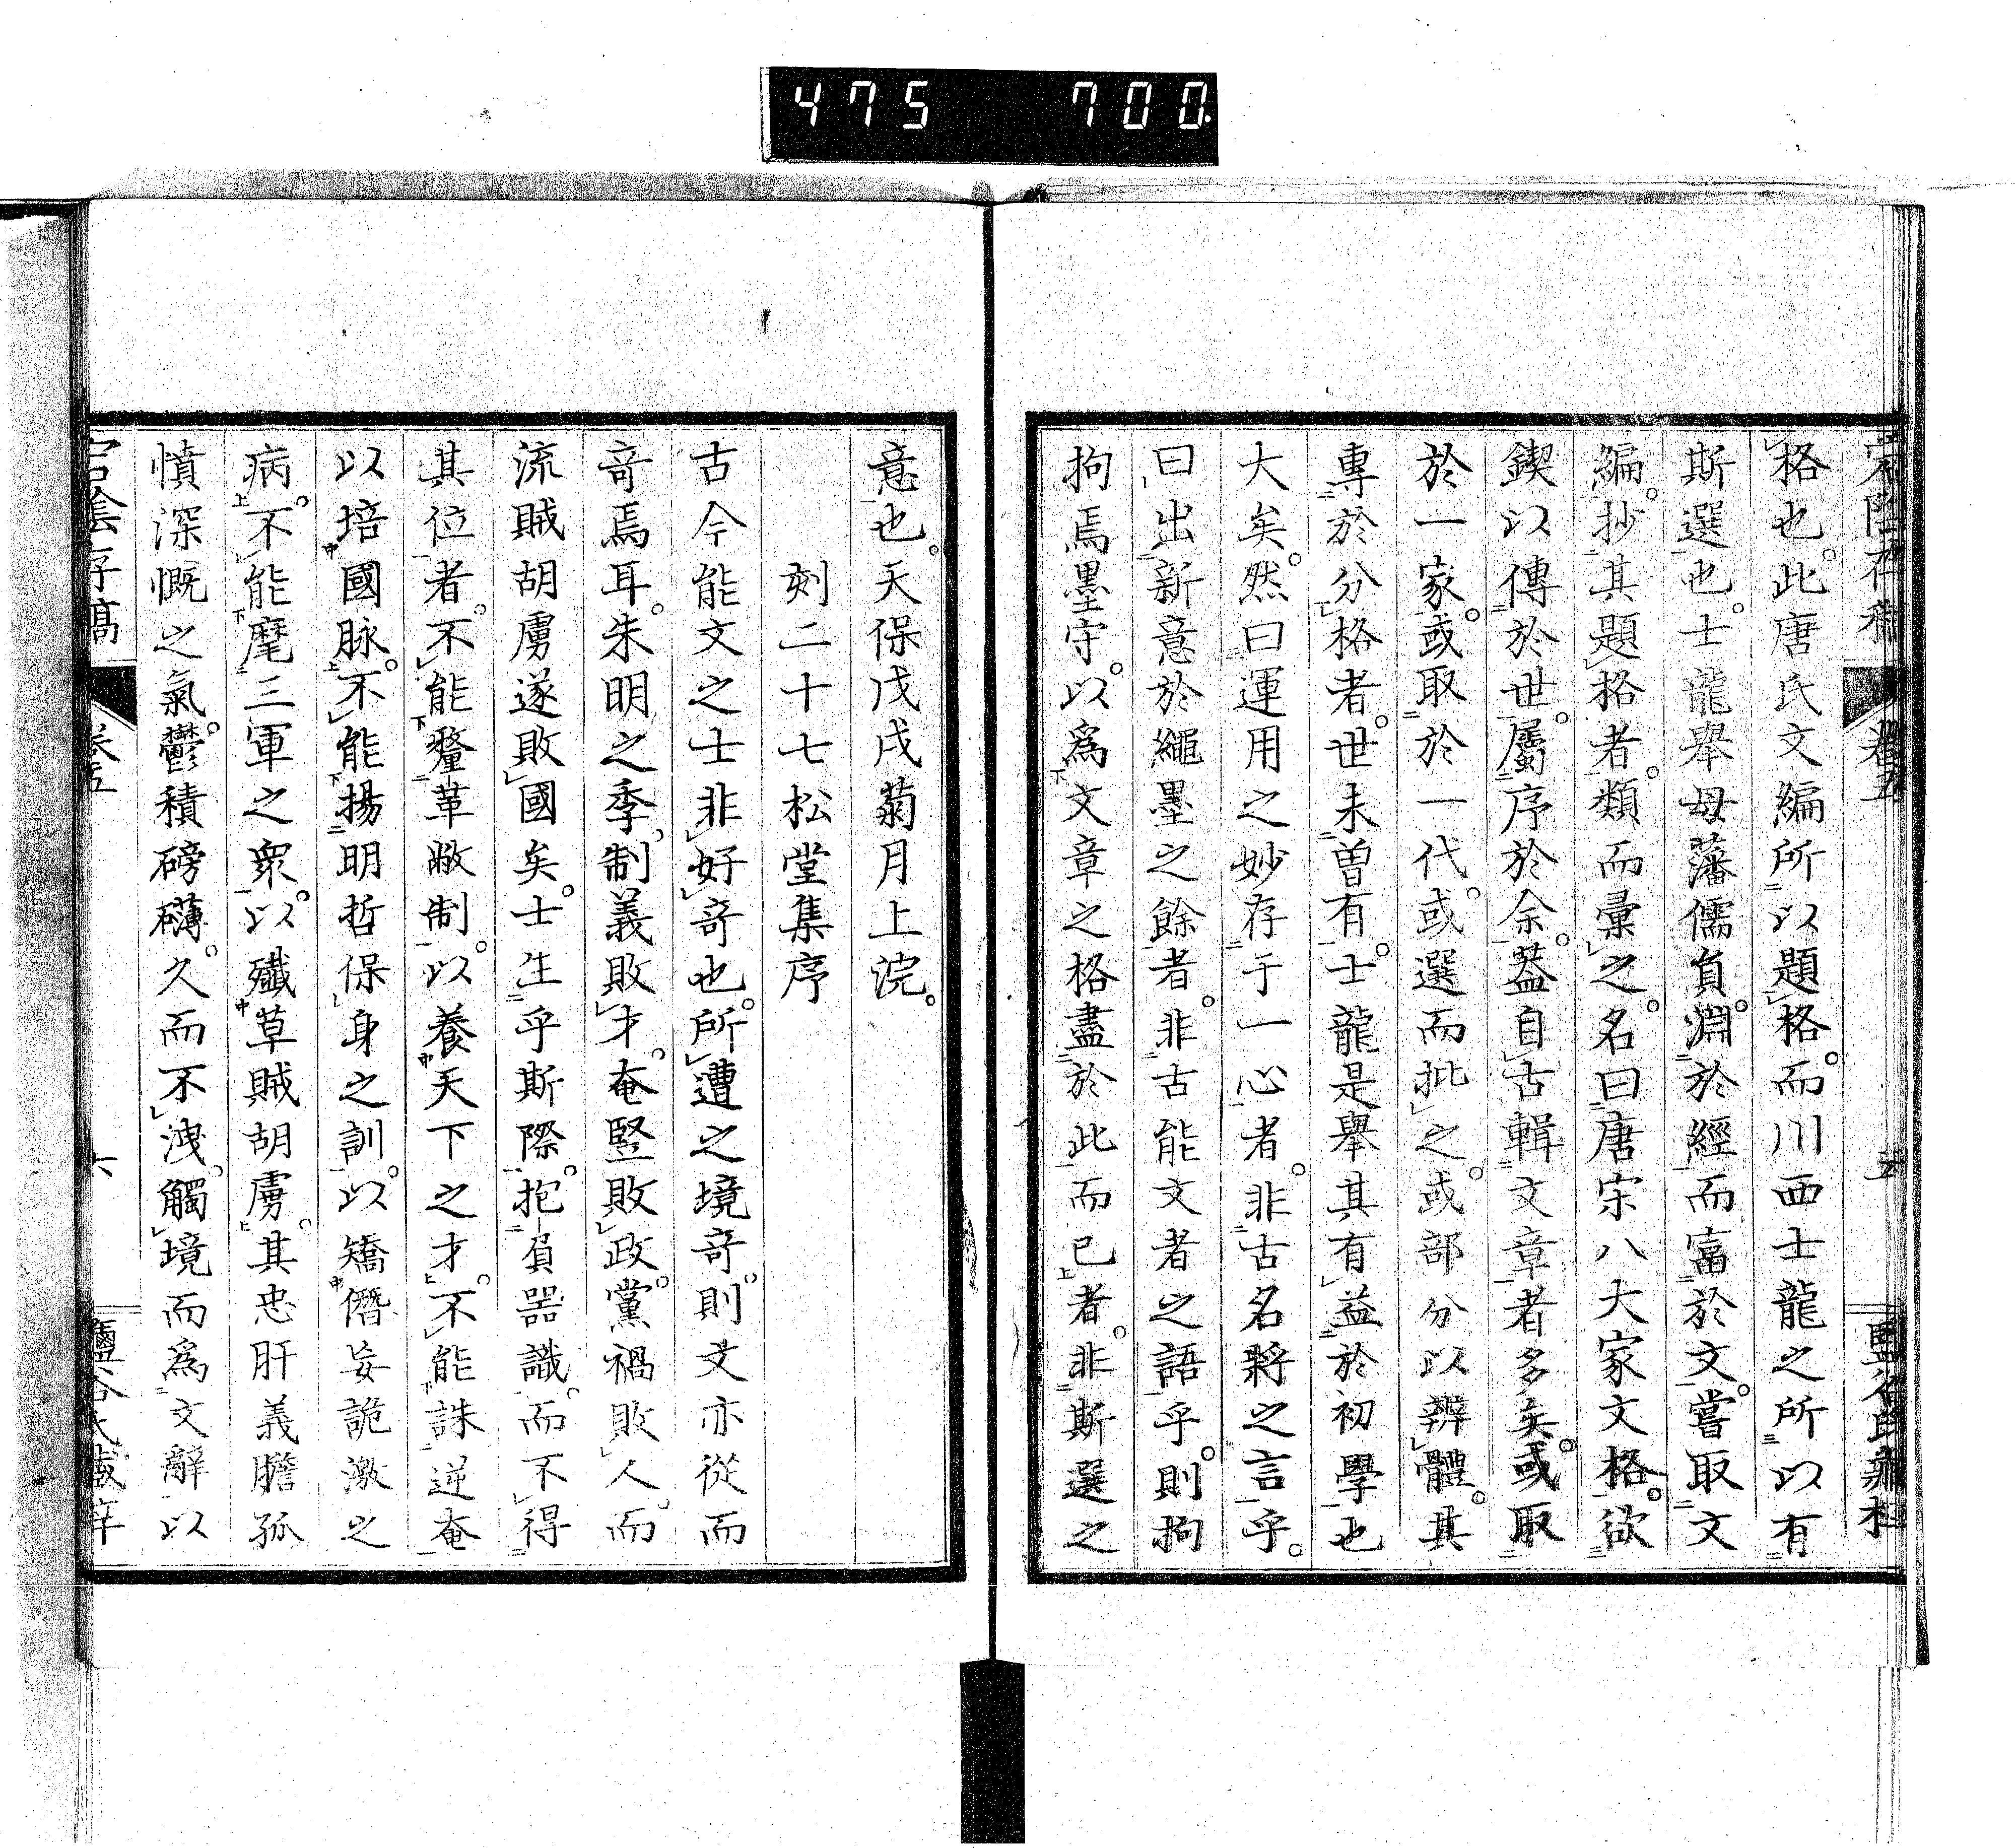 475 700
格也。此唐氏文編所以題格。而川西士龍之所以有
斯選也。士龍舉母藩儒員。淵於經而富於文。嘗取文
編。抄其題格者。類而彙之。名曰唐宋八大家文格。欲
鍥以傳於世。屬序於余。葢自古輯文章者多矣。或取
於一家。或取於一代。或選而批之。或部分以辨體。其
專於分格者。世未曾有。士龍是舉其有益於初學也
大矣。然曰運用之妙存于一心者。非古名將之言乎。
曰出新意於繩墨之餘者。非古能文者之語乎。則拘
拘焉墨守。以爲文章之格盡於此而已者。非斯選之
意也。天保戊戌菊月上浣。
刻二十七松堂集序
古今能文之士非好奇也。所遭之境奇。則文亦從而
奇焉耳。朱明之季。制義敗才。奄豎敗政。黨禍敗人。而
流賊胡虜遂敗國矣。士生乎斯際。抱負器識。而不得
其位者。不能釐革敝制。以養天下之才。不能誅逆奄
以培國脉。不能揚明哲保身之訓。以矯僭妄詭激之
病。不能麾三軍之衆。以殲草賊胡虜。其忠肝義膽孤
憤深慨之氣。鬱積磅礴。久而不洩。觸境而爲文辭以
宕陰存稿 卷五 六